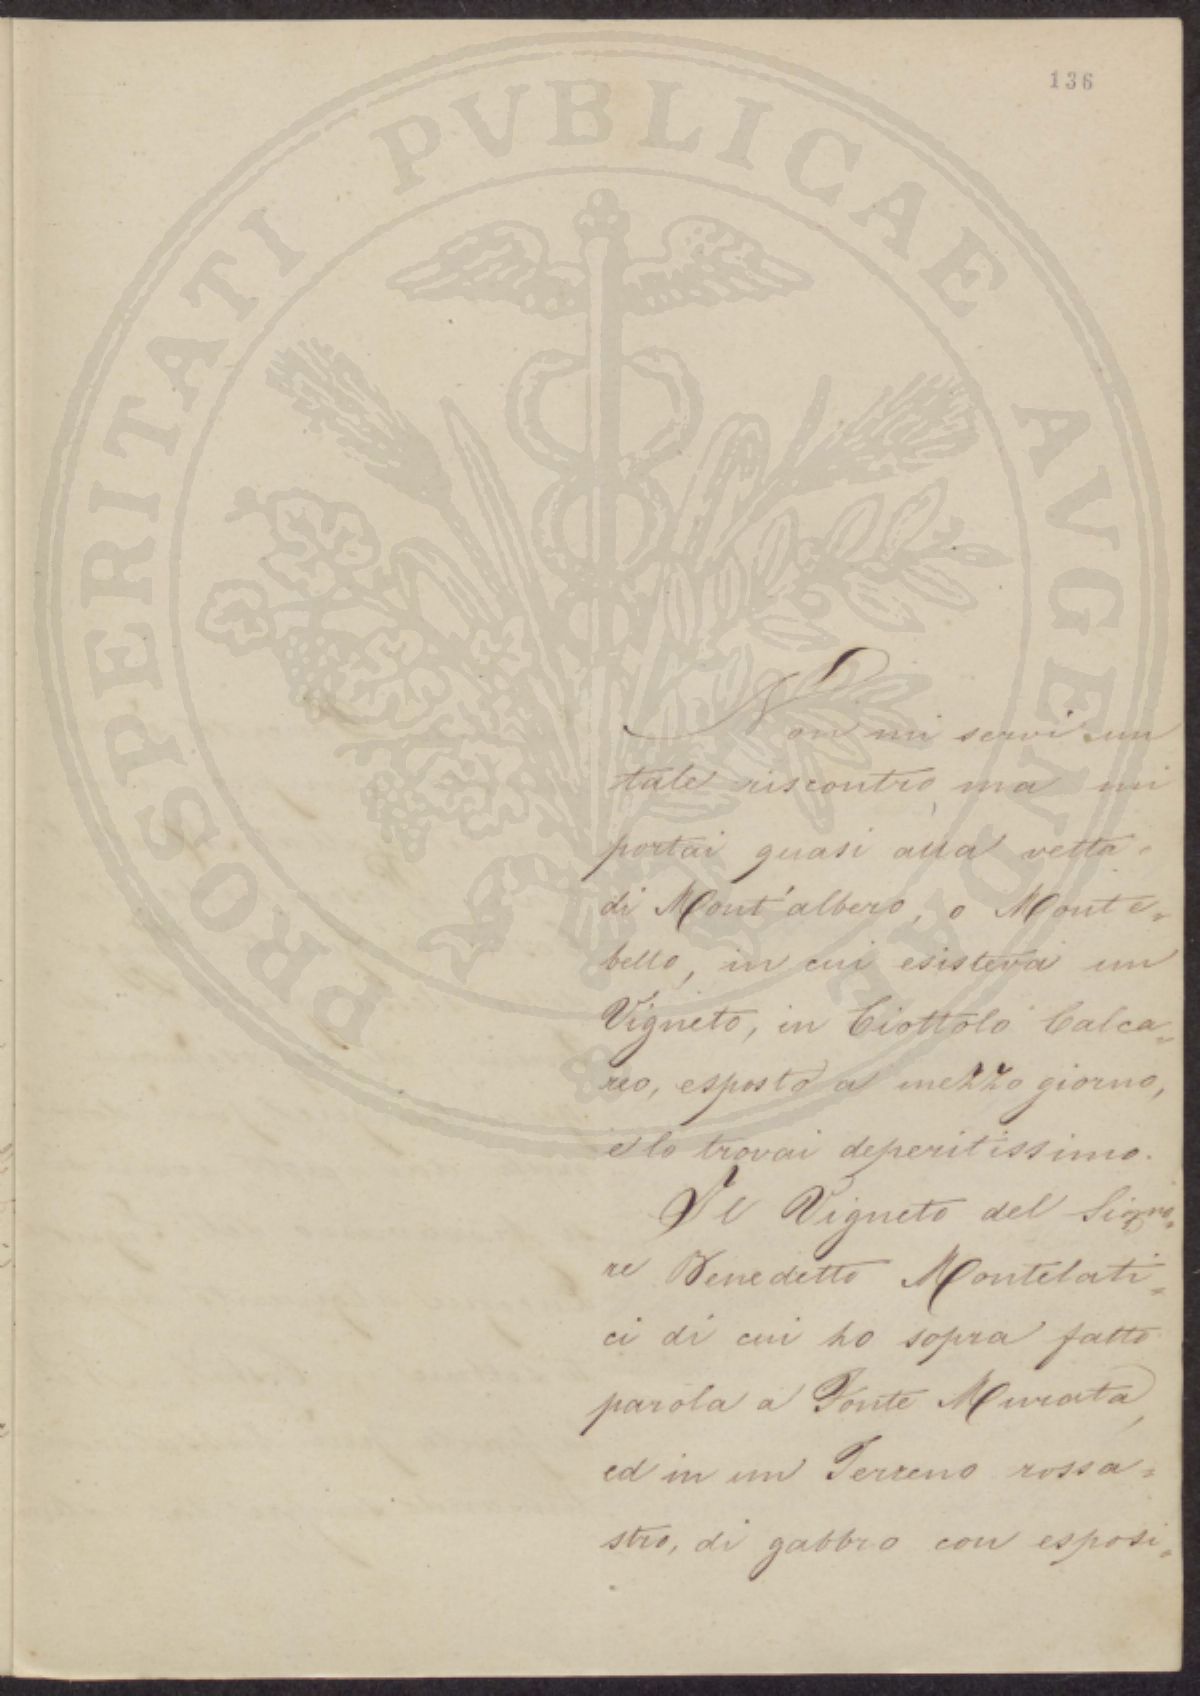 136
PROSPERITATI PVBLICAE AVGENDAE
Non mi servi un
tale riscontro, ma mi
portai quasi alla vetta
di Mont'albero, o Monte=
bello, in cui esisteva un
Vigneto, in Ciottolo Calca=
reo, esposto a mezzo giorno,
e lo trovai deperitissimo.
Il Vigneto del Signo=
re Benedetto Montelati=
ci di cui ho sopra fatto
parola a Fonte Murata,
ed in un Terreno rossa=
stro, di gabbro con esposi=